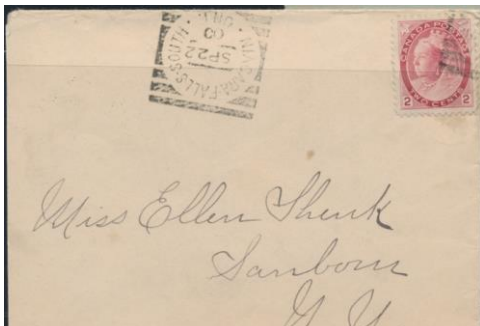 NIAGARA-FALLS-SOUTH · ONT.
SP 22
00
CANADA POSTAGE
2 TWO CENTS 2
Miss Ellen Shenk
Sanborn
N. Y.